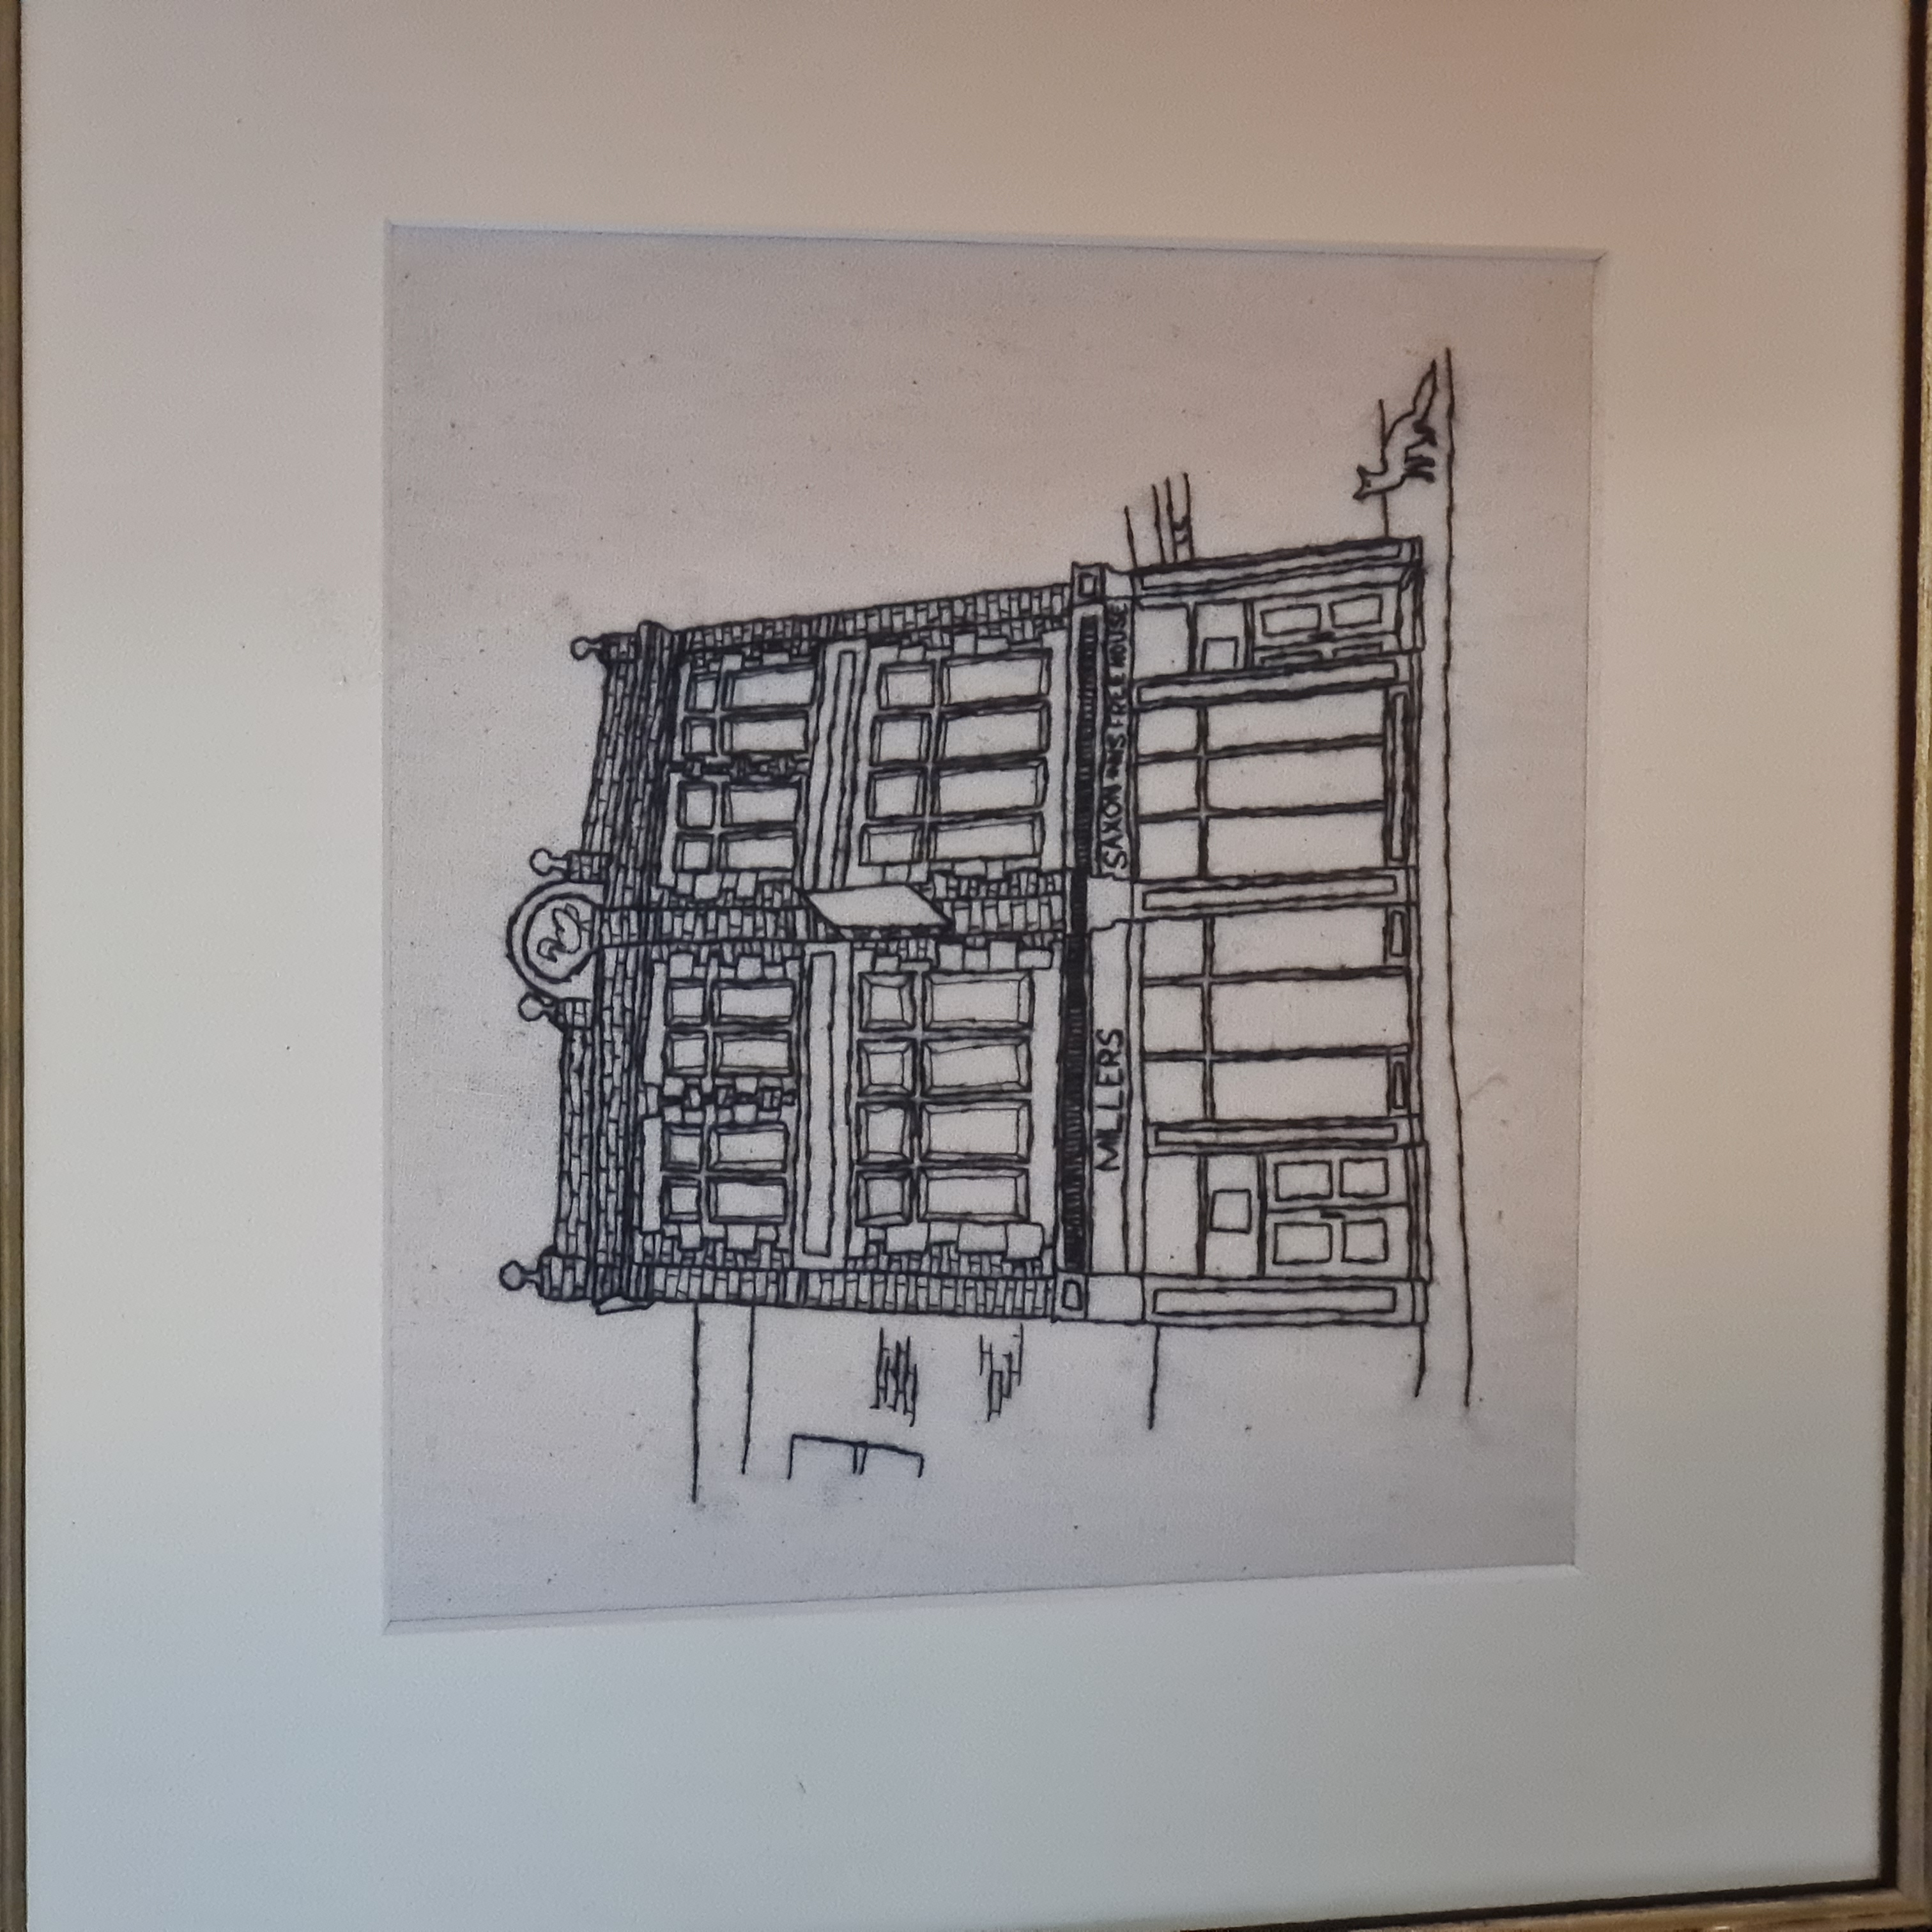 MILLERS
SAXON INNS FREE HOUSE